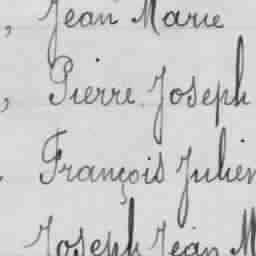 , Jean Marie
, Pierre Joseph
François Julien
Joseph Jean M